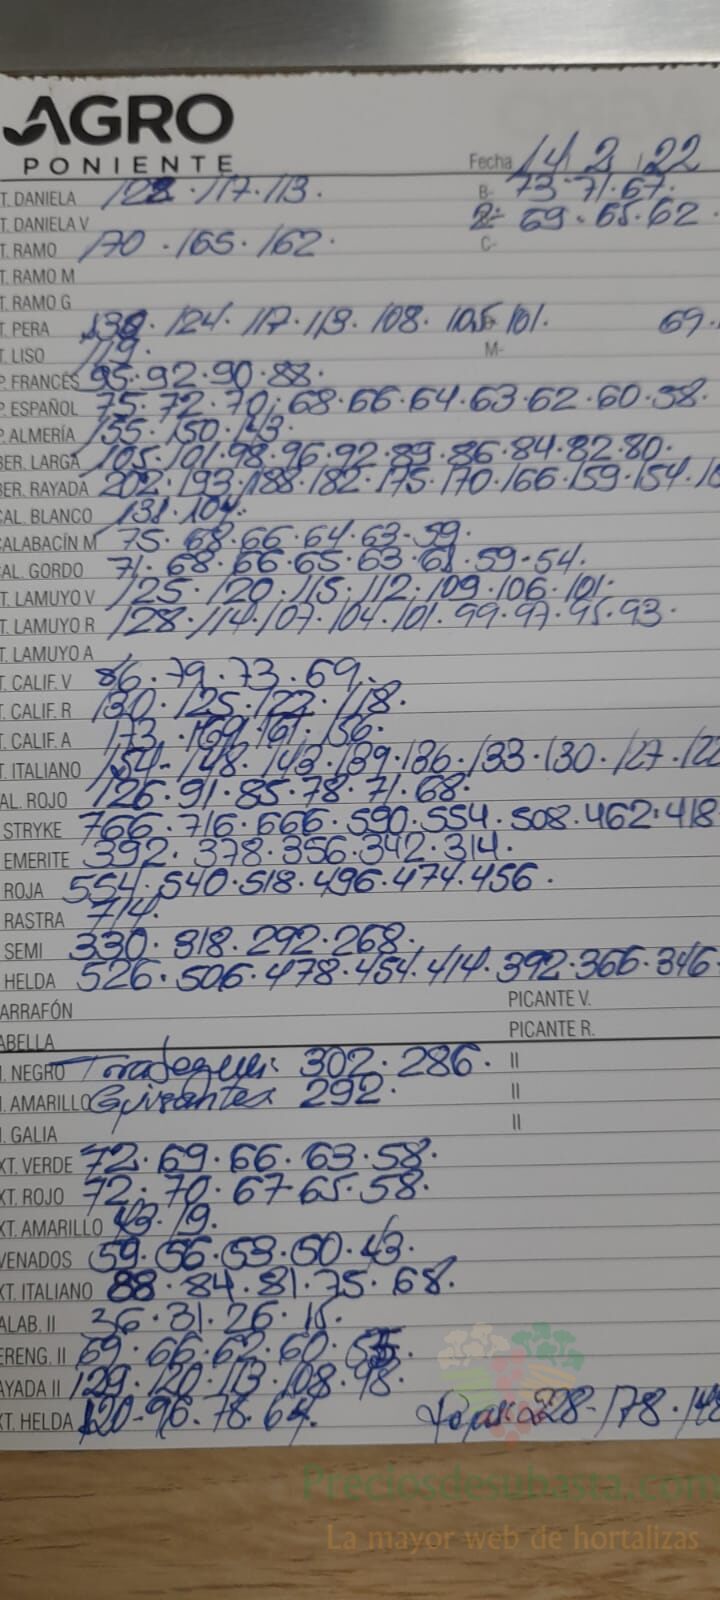 AGRO
PONIENTE
Fecha 14 2 22
T. DANIELA 122 · 117 · 113 · B- 73 · 71 · 67 ·
T. DANIELA V 2- 69 · 65 · 62 ·
T. RAMO 170 · 165 · 162 · C-
T. RAMO M
T. RAMO G
T. PERA 130 · 124 · 117 · 113 · 108 · 105 · 101 · 69 ·
T. LISO 119 · M-
P. FRANCÉS 95 · 92 · 90 · 88 ·
P. ESPAÑOL 75 · 72 · 70 · 68 · 66 · 64 · 63 · 62 · 60 · 58 ·
P. ALMERÍA 155 · 150 · 143 ·
BER. LARGA 105 · 101 · 98 · 96 · 92 · 89 · 86 · 84 · 82 · 80 ·
BER. RAYADA 202 · 193 · 188 · 182 · 175 · 170 · 166 · 159 · 154 ·
CAL. BLANCO 131 · 104 ·
CALABACÍN M 75 · 68 · 66 · 64 · 63 · 59 ·
CAL. GORDO 71 · 68 · 66 · 65 · 63 · 61 · 59 - 54 ·
T. LAMUYO V 125 · 120 · 115 · 112 · 109 · 106 · 101 ·
T. LAMUYO R 128 · 114 · 107 · 104 · 101 · 99 · 97 · 95 · 93 ·
T. LAMUYO A
T. CALIF. V 86 · 79 · 73 · 69 ·
T. CALIF. R 130 · 125 · 122 · 118 ·
T. CALIF. A 173 · 169 · 161 · 156 ·
T. ITALIANO 154 - 148 · 143 · 139 · 136 · 133 · 130 · 127 · 122
AL. ROJO 126 · 91 · 85 · 78 · 71 · 68 ·
STRYKE 766 · 716 · 666 · 590 · 554 · 508 · 462 · 418
EMERITE 392 · 378 · 356 · 342 · 314 ·
ROJA 554 · 540 · 518 · 496 · 474 · 456 ·
RASTRA 714 ·
SEMI 330 · 318 · 292 · 268 ·
HELDA 526 · 506 · 478 · 454 · 414 · 392 · 366 · 346
ARRAFÓN PICANTE V.
ABELLA PICANTE R.
NEGRO 302 · 286 · II
AMARILLO Guisantes 292 · II
GALIA II
XT. VERDE 72 · 69 · 66 · 63 · 58 ·
XT. ROJO 72 · 70 · 67 - 65 · 58 ·
XT. AMARILLO 43 · 19 ·
VENADOS 59 · 56 · 53 · 50 · 43 ·
XT. ITALIANO 88 · 84 · 81 · 75 · 68 ·
ALAB. II 36 · 31 · 26 · 15 ·
ERENG. II 69 · 66 · 62 · 60 · 55 ·
AYADA II 129 · 120 · 113 · 108 · 98 ·
XT. HELDA 120 - 96 · 78 · 64 · 228 - 178 · 148
Preciosdesubasta.com
La mayor web de hortalizas